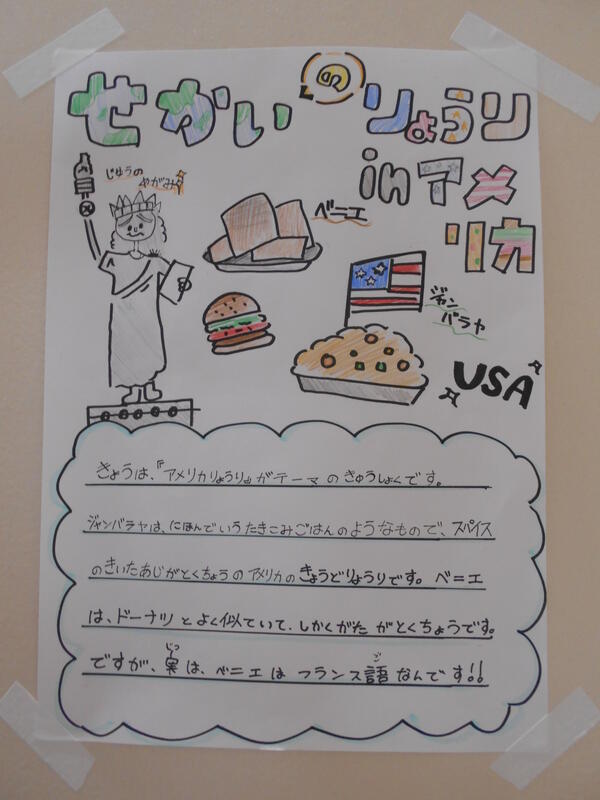 せかいのりょうり
inアメ
リカ
じゆうの
めがみ
ベニエ
ジャン
バラヤ
USA
きょうは、『アメリカりょうり』がテーマのきゅうしょくです。
ジャンバラヤは、にほんでいうたきこみごはんのようなもので、スパイス
のきいたあじがとくちょうのアメリカのきょうどりょうりです。ベニエ
は、ドーナツとよく似ていて、しかくがたがとくちょうです。
ですが、実は、ベニエはフランス語なんです!!
じつ
ご